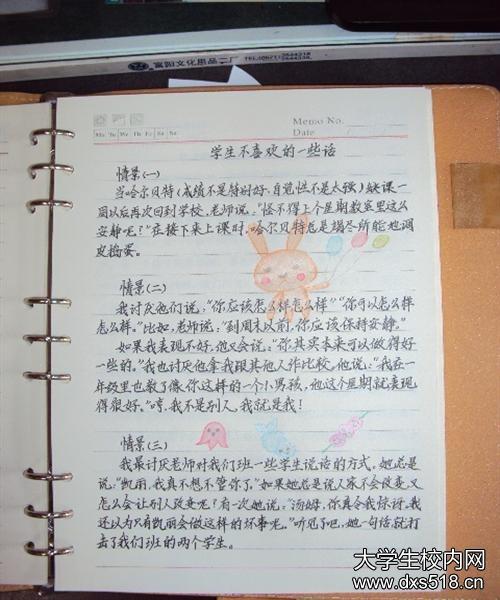 富阳文化用品二厂
Memo No.
Mo Tu We Th Fr Sa Su
Date
学生不喜欢的一些话
情景(一)
当哈尔贝特(成绩不是特别好,自觉性不是太强)缺课一
周以后再次回到学校,老师说:"怪不得上个星期教室里这么
安静呢?"在接下来上课时,哈尔贝特总是竭尽所能地调
皮捣蛋。
情景(二)
我讨厌他们说:"你应该怎么样怎么样""你可以怎么样
怎么样。"比如,老师说:"到周末以前,你应该保持安静。"
如果我表现不好,他又会说:"你其实本来可以做得好
一些的。"我也讨厌他拿我跟其他人作比较。他说:"我在一
年级里也教了像你这样的一个小男孩,他这个星期就表现
得很好。"哼,我不是别人,我就是我!
情景(三)
我最讨厌老师对我们班一些学生说话的方式。她总是
说"凯丽,我真不想不管你了。"如果她总是说人家不会改变,又
怎么会让别人改变呢?有一次她说:"汤姆,你真令我惊讶,我
还以为只有凯丽会做这样的坏事呢。"听见了吧,她一句话就打
击了我们班的两个学生。
大学生校内网
www.dxs518.cn